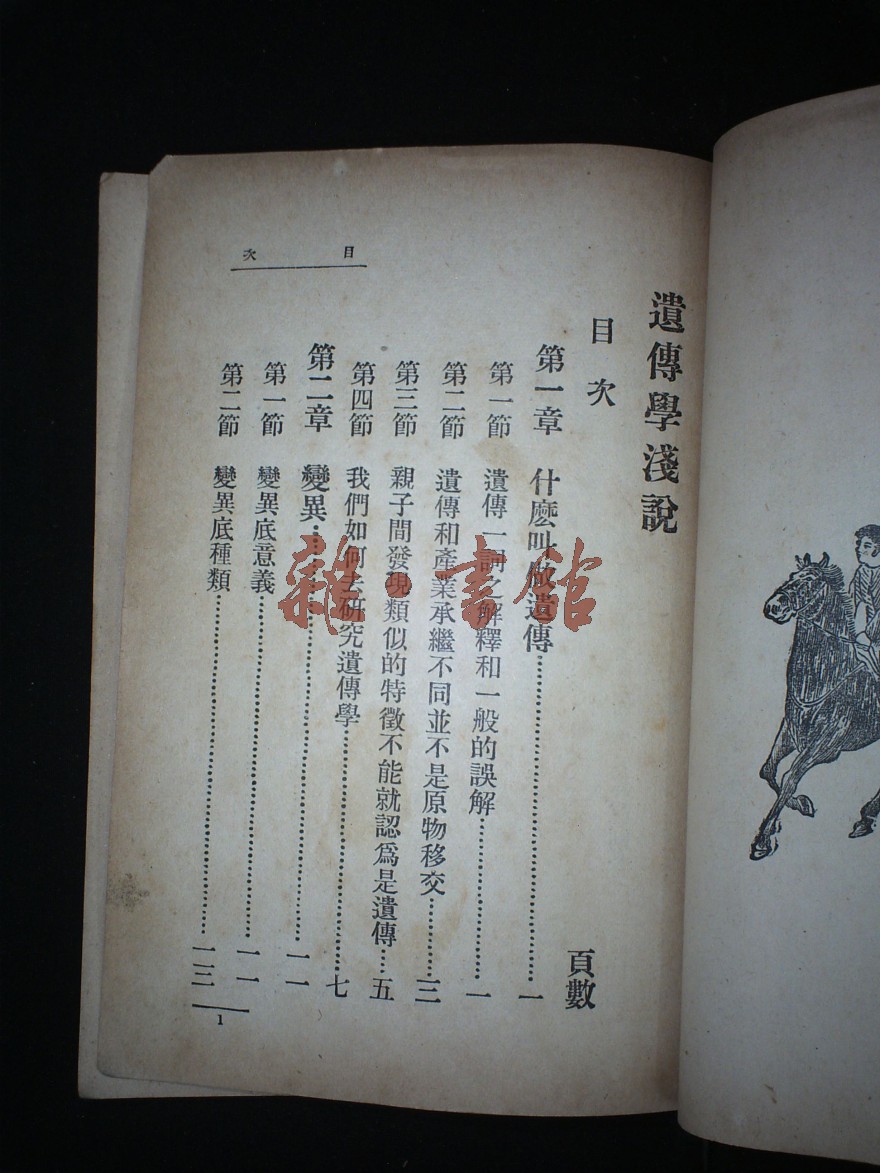 遺傳學淺說
目次
頁數
第一章 什麽叫做遺傳……一
第一節 遺傳一詞之解釋和一般的誤解……一
第二節 遺傳和產業承繼不同並不是原物移交……三
第三節 親子間發現類似的特徵不能就認爲是遺傳……五
第四節 我們如何去研究遺傳學……七
第二章 變異……一一
第一節 變異底意義……一一
第二節 變異底種類……一三
目次
1
雜·書館